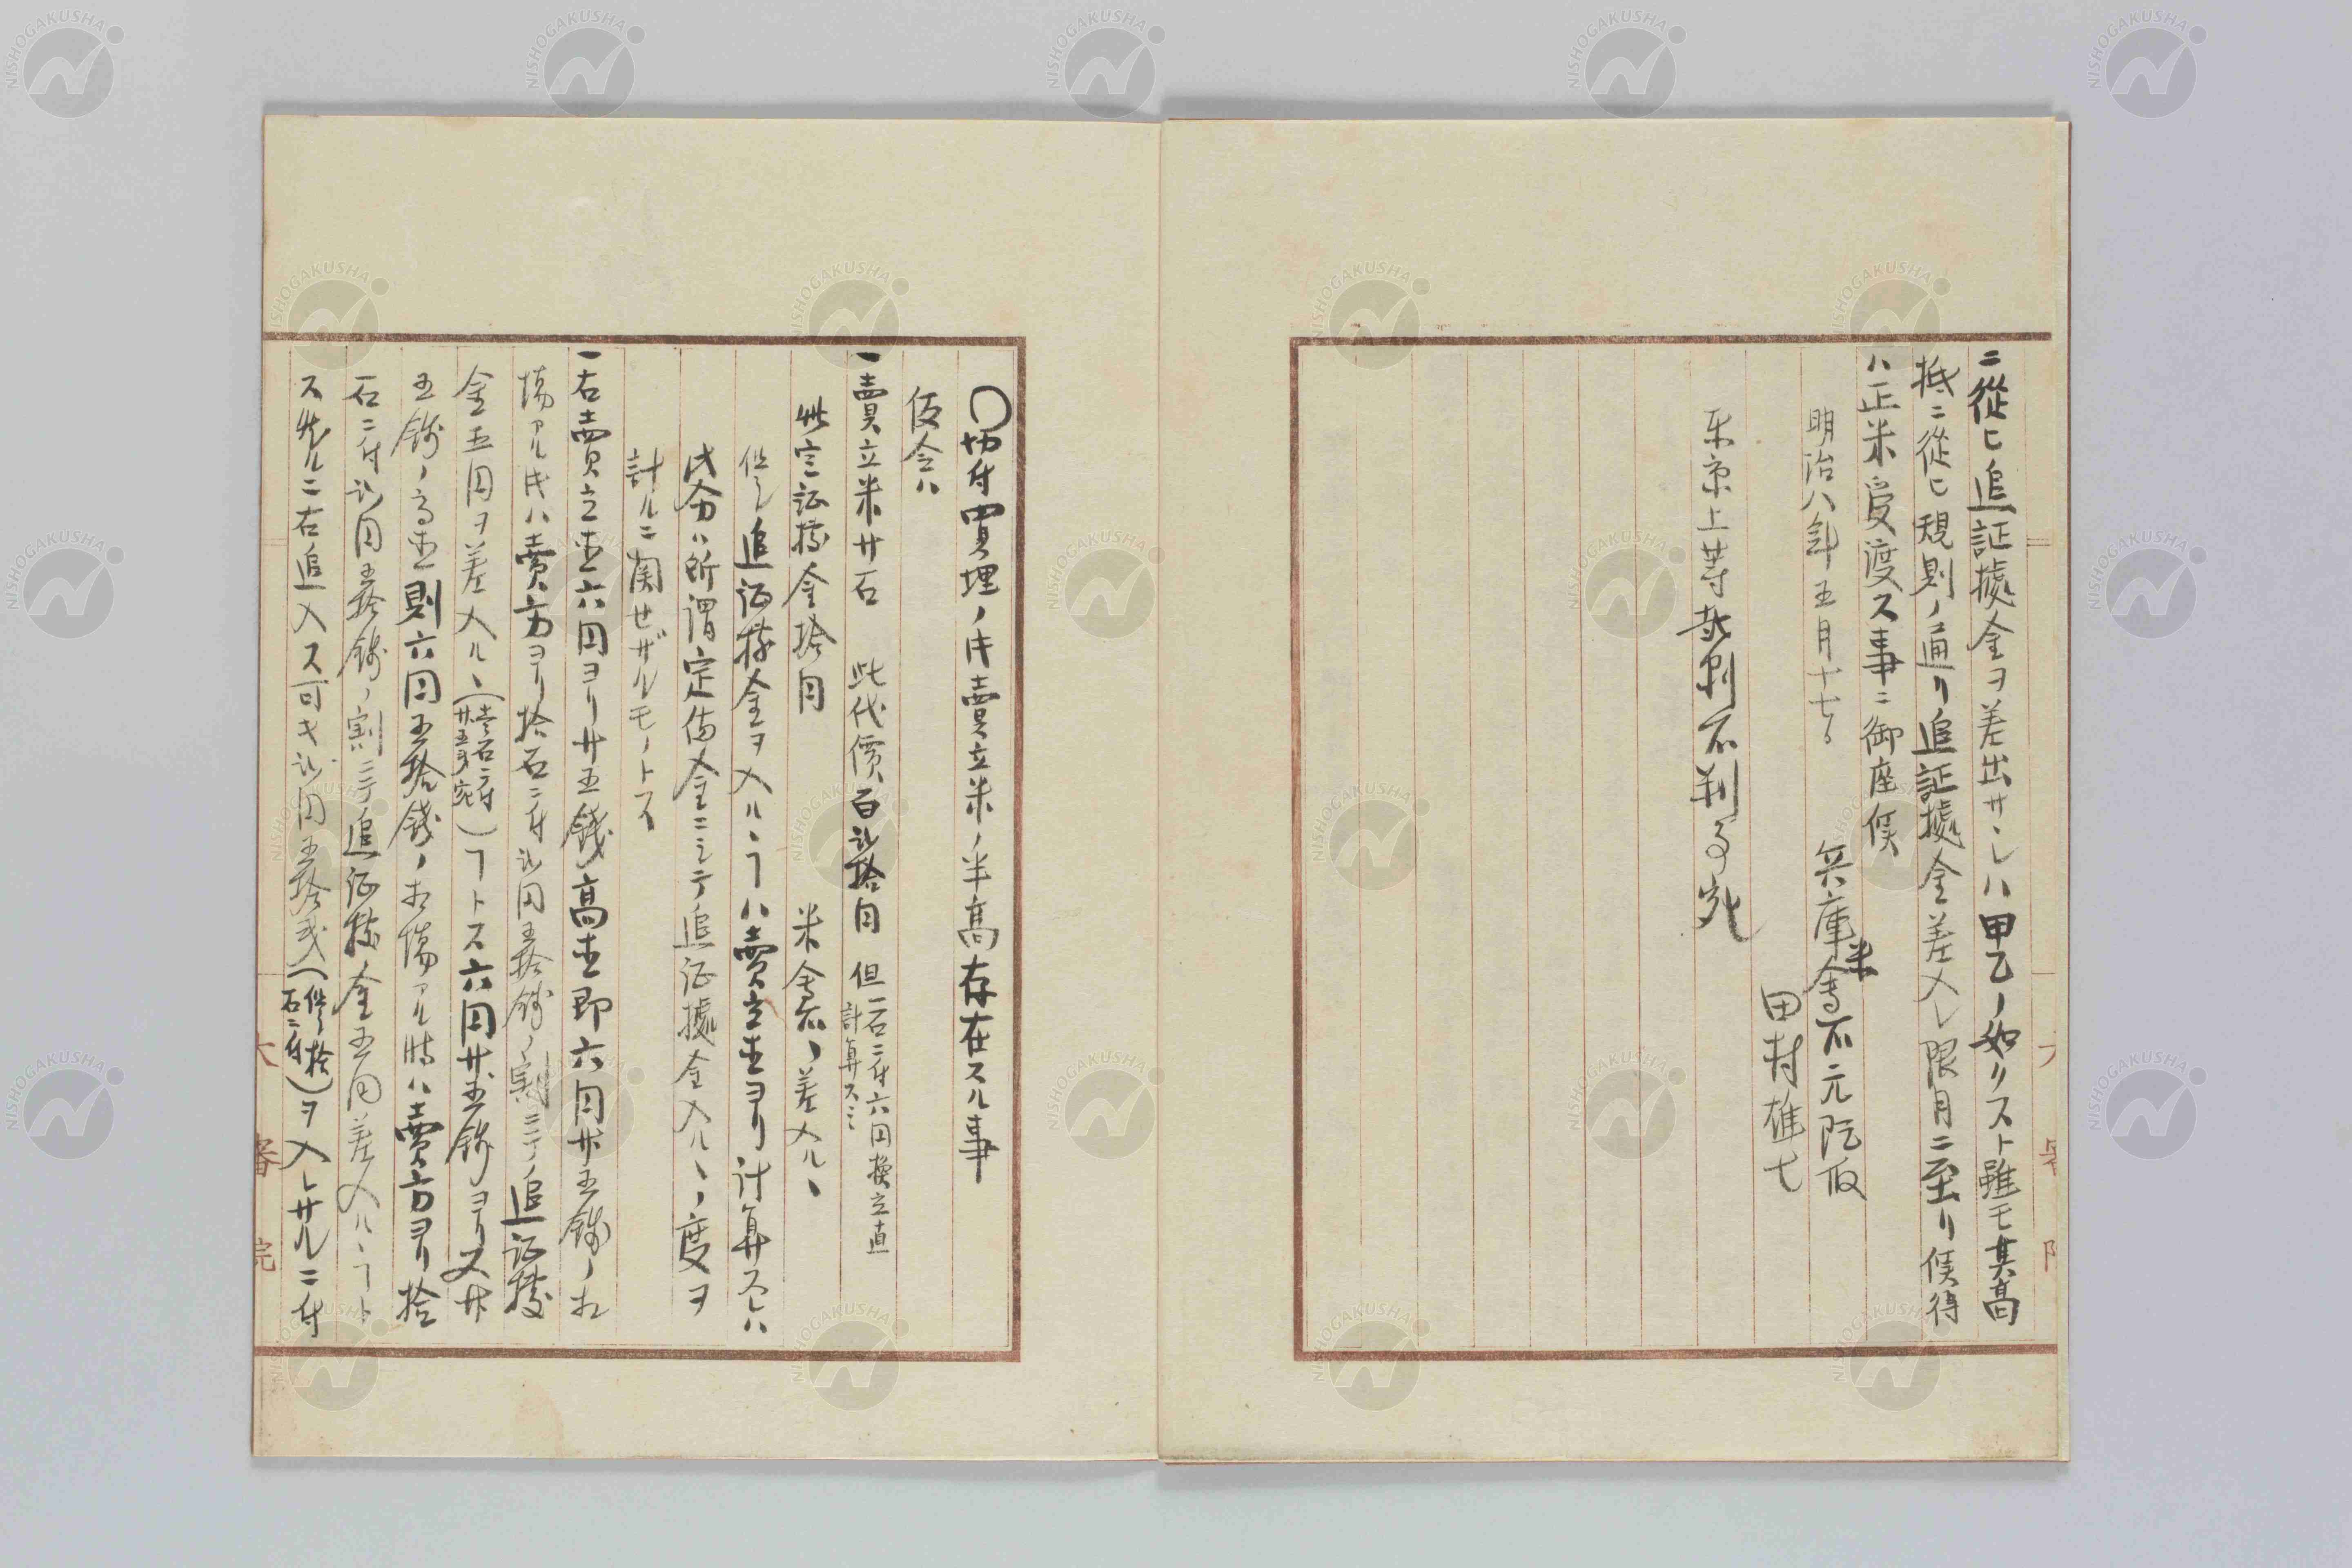 ニ從ヒ追証據金ヲ差出サヽレハ甲乙ノ如クスト雖モ其高
抵ニ從ヒ規則ノ通リ追証據金差入レ限月ニ至リ候得
ハ正米受渡ス事ニ御座候
明治八年五月十七日
兵庫米會不元
田村雄七
東京上等裁判所判事宛
〇切付買埋ノ片賣立米ノ半高存在スル事
仮令ハ
一賣立米廿石 此代價百弐拾円 但一石ニ付六円換立直計算スミ
此定証據金拾円 米會社ノ差入ル丶
但シ追証據金ヲ入ル丶ヿハ賣立直ヨリ計算スレハ
此分ハ所謂定備金ニシテ追証據金入ル丶ノ度ヲ
計ルニ関セザルモノトス
一右賣立直六円ヨリ廿五錢高直即六円廿五錢ノ相
場アル片ハ賣方ヨリ拾石ニ付弐円五拾錢ノ割ニテ追証據
金五円ヲ差入ル丶(壱石ニ付廿五錢宛)ヿトス六円廿五錢ヨリ又廿
五錢ノ高直則六円五拾錢ノ相場アル時ハ賣方ヨリ拾
石ニ付弐円五拾錢ノ割ニテ追証據金五円差入ル丶ヿト
ス然ルニ右追入ス可キ弐円五拾戔(但シ拾石ニ付)ヲ入レサルニ付
大審院
NISHOGAKUSHA